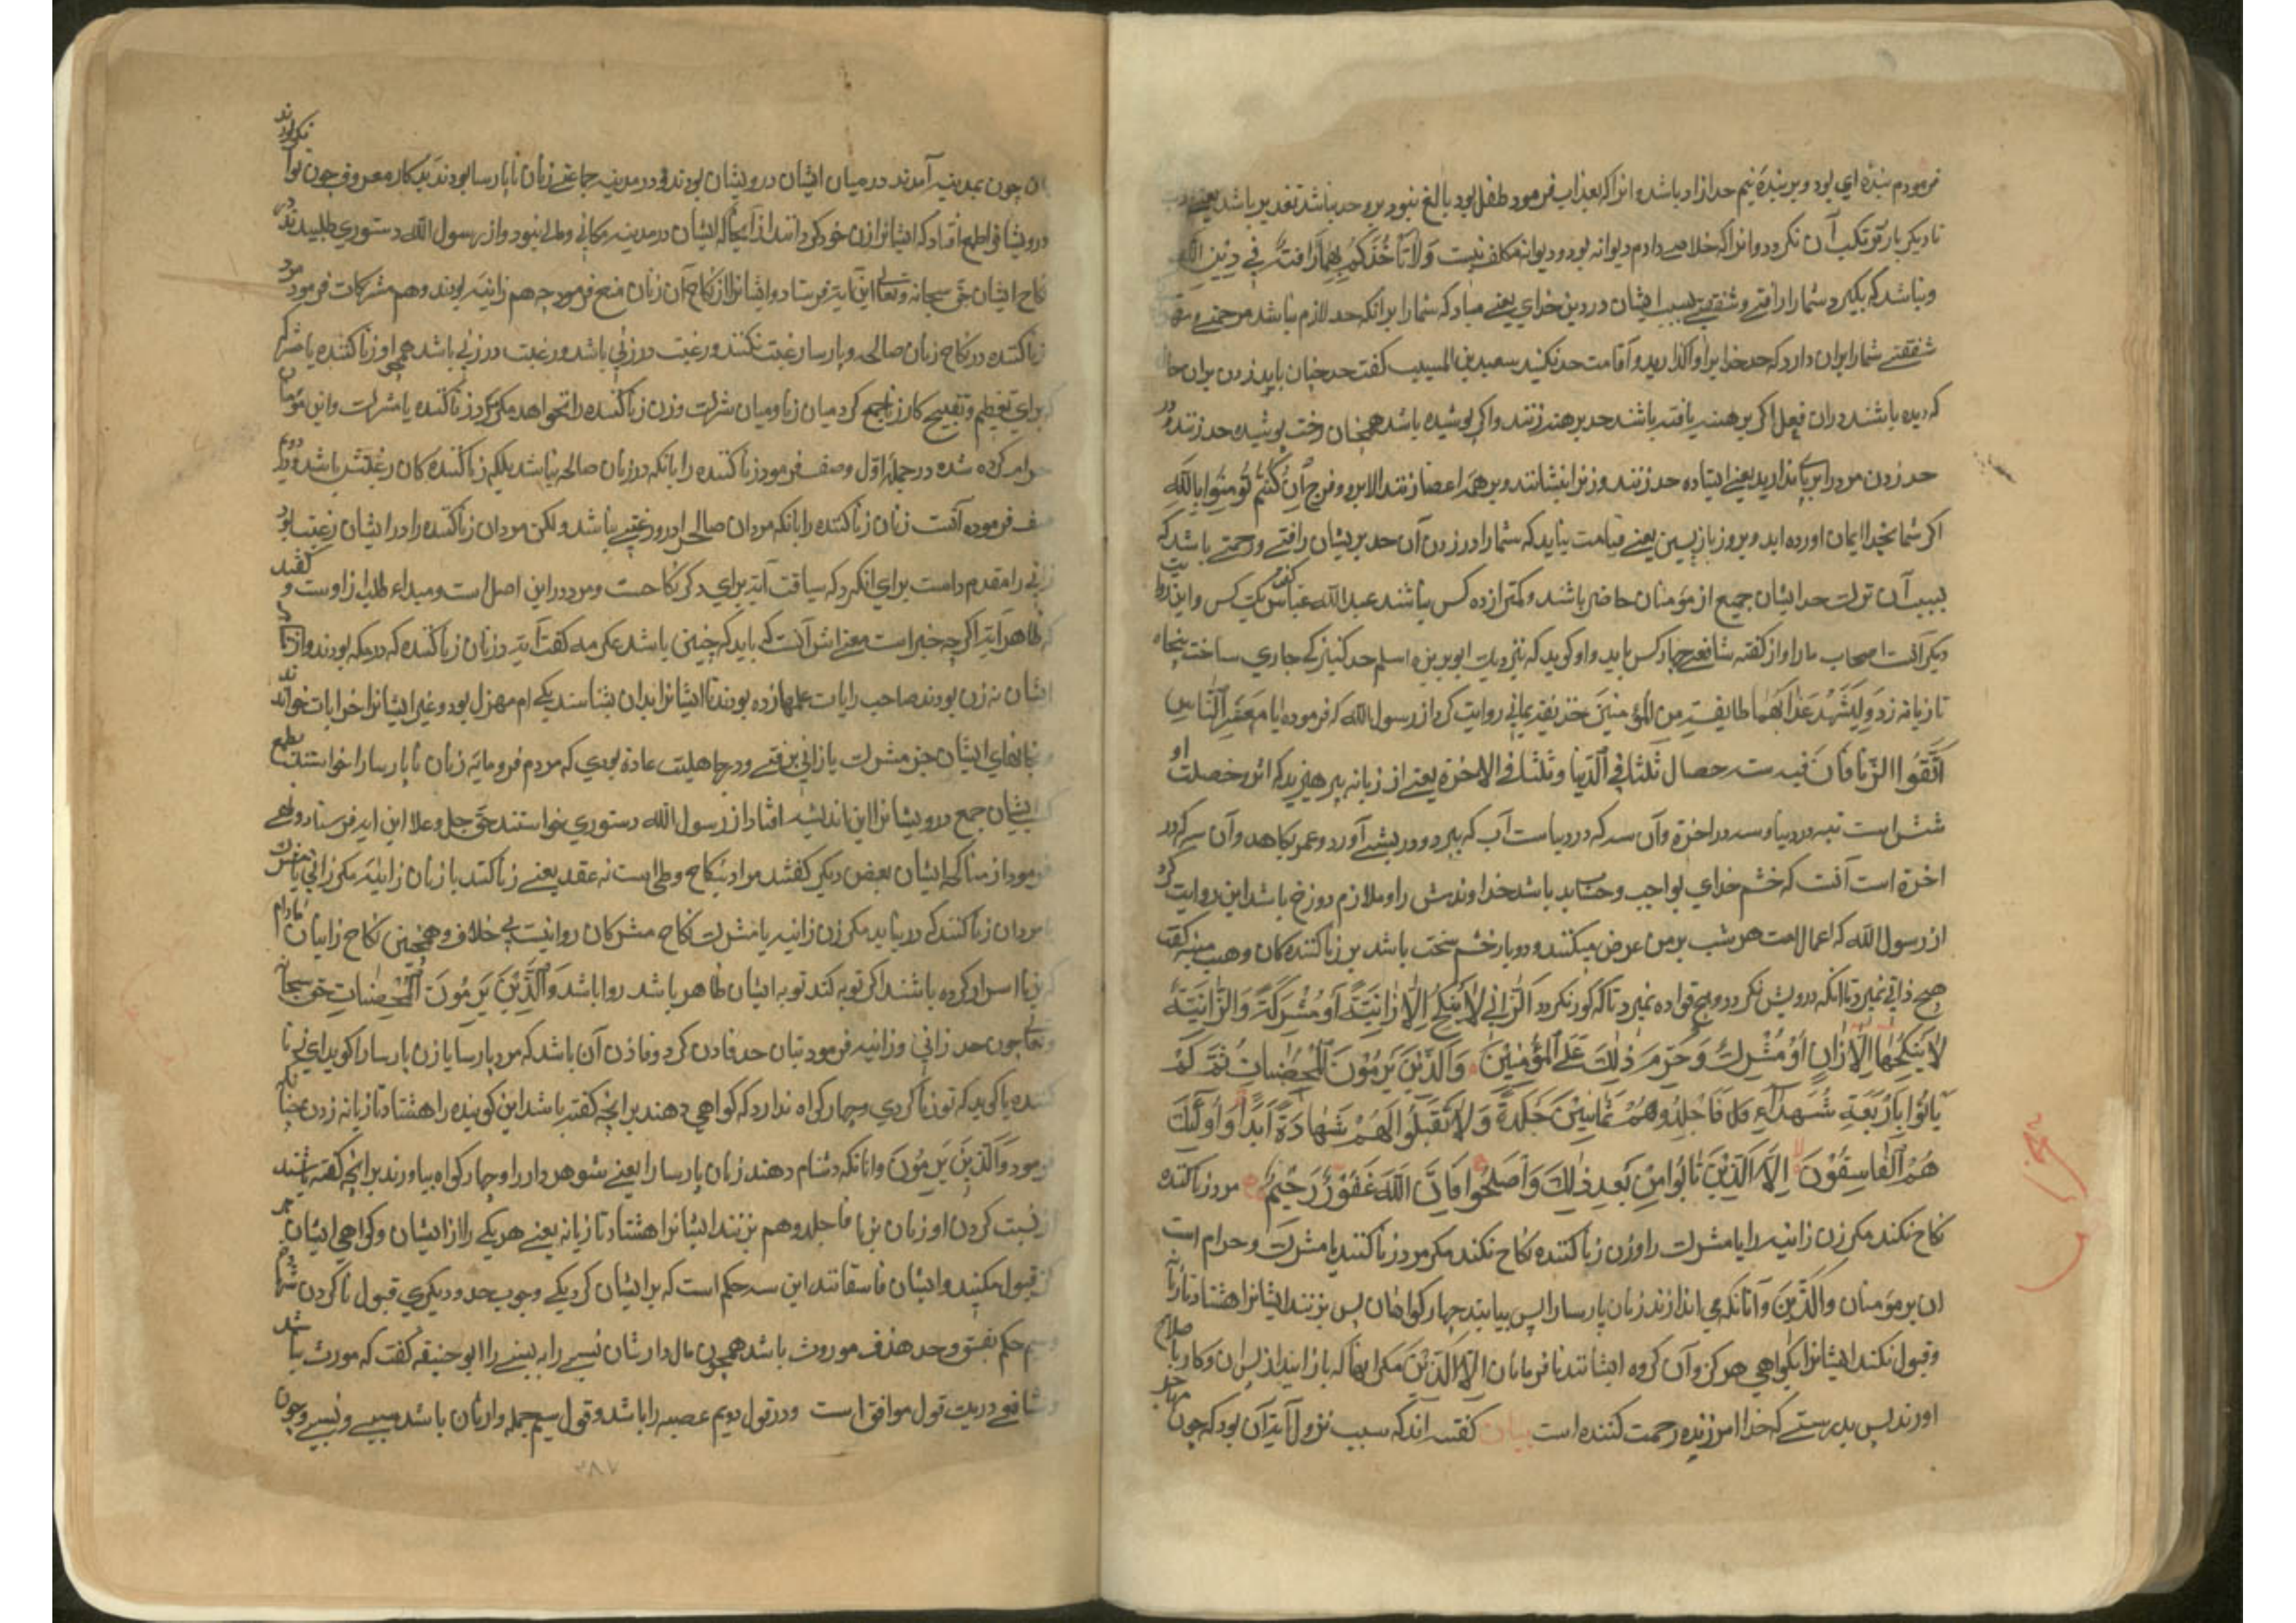 فرمودم بندۀ ای بود و بر بندۀ نیم حد ازاد باشد و انرا که بعذاب فرمود طفل بود بالغ نبود برو حد نباشد تعذیر باشد یعنی
تا دیکر بار مرتکب آن نکردد و انرا که خلاصی دادم دیوانه بود و دیوانه مکلف نیست وَلَا تَأْخُذْكُمْ بِهِمَا رَافَةٌ فِي دِيْنِ اللَّهِ
ونباشد که بکیرد شمارا رافتے وشفقتے بسبب ایشان در دین خدای یعنے مبادکه شمارا برانکه حد لازم باشد مرحمتے و
شفقتے شمارا بران دارد که حد خدایرا واکذارید و آقامت حد نکنید سعید بن المسیب کفت حد چنان باید زدن بران حا
که دیده باشند دران فعل اکر برهنه یافته باشند حد برهنه زنند واکر پوشیده باشد همچنان رخت پوشیده حد زنند و در
حد زدن مرد را برپای بدارید یعنے ایستاده حد زنند وزنرا بنشانند و بر همه اعضا زنند الا برو و فرج اِنْ كُنْتُمْ تُؤْمِنُوا بِاللَّهِ
اکر شما بخدا ایمان اورده اید و بروز بازپسین یعنے قیامت نباید که شمارا در زدن آن حد بریشان رافتے ورحمتے باشد که
بسبب آن ترک حد ایشان جمیع از مؤمنان حاضر باشند و کمتر از ده کس نباشند عبد الله عباس کفت یک کس و این
دیکر آنست اصحاب ما را و از کفته شافعے چهار کس باید و او کوید که نزدیک ابو برزه اسلم حد کنیزکے جاری ساخت پنجاه
تازیانه زد وَلْيَشْهَدْ عَذَابَهُمَا طَايِفَةٌ مِنَ الْمُؤْمِنِينَ حذیفه یمانی روایت کرد از رسول الله که فرموده یا مَعْشَرَ النَّاسِ
اتَّقُوا الزِّنَا فَاِنَّ فيه ست خصال ثلثا في الدُّنيا وثلثا في الاخرة یعنے از زنا به پرهیزید که اندر او خصلت
شش است سه در دنیا و سه در اخرة و آن سه که در دنیاست آب که ببرد و درویشے آورد و عمر بکاهد و آن سه که در
اخرة است آنست که خشم خدای بواجب و حساب بد باشد خداوندش را و ملازم دوزخ باشد این روایت کرد
از رسول الله که اعمال امت هر شب بر من عرض میکنند و دو بار خشم سخت باشد بر زنا کننده کان وهب منبه کفت
هیچ زانی نمیرد تا انکه درویش نکردد و هیچ قواده نمیرد تا که کور نکردد اَلزَّانِي لَا يَنْكِحُ اِلَّا زَانِيَةً اَوْ مُشْرِكَةً وَالزَّانِيَةُ
لَا يَنْكِحُهَا اِلَّا زَانٍ اَوْ مُشْرِكٌ وَحُرِّمَ ذٰلِكَ عَلَى الْمُؤْمِنِيْنَ وَالَّذِيْنَ يَرْمُوْنَ الْمُحْصَنَاتِ ثُمَّ لَمْ
يَاتُوْا بِاَرْبَعَةِ شُهَدَآءَ فَاجْلِدُوْهُمْ ثَمَانِيْنَ جَلْدَةً وَلَا تَقْبَلُوْا لَهُمْ شَهَادَةً اَبَدًا وَاُولٰٓئِكَ
هُمُ الْفَاسِقُوْنَ اِلَّا الَّذِيْنَ تَابُوْا مِنْ بَعْدِ ذٰلِكَ وَاَصْلَحُوْا فَاِنَّ اللّٰهَ غَفُوْرٌ رَّحِيْمٌ مرد زنا کننده
نکاح نکند مکر زن زانیه را یا مشرک را و زن زنا کننده نکاح نکند مکر مرد زنا کننده یا مشرک و حرام است
ان بر مؤمنان وَالَّذِيْنَ و آنانکه می اندازند زنان پارسارا پس نیایند چهار کواهان پس بزنند ایشانرا هشتاد تازیانه
و قبول نکنند ایشانرا کواهی هرکز و آن کروه ایشانند نافرمانان اِلَّا الَّذِيْنَ مکر انها که باز ایند از پس ان و کار با صلاح
اورند پس بدرستے که خدا امرزنده رحمت کننده است بیان کفته اند که سبب نزول آیة آن بود که چون مهاجر
ان چون بمدینه آمدند در میان ایشان درویشان بودند و در مدینه جماعتے زنان ناپارسا بودند بدکار معروف چون توا نکر بودند
درویشانرا طمع افتاد که ایشانرا زن خود کردانند از آنجا که ایشان در مدینه مکانی و طی نبود و از رسول الله دستوری طلبیدند در
نکاح ایشان حق سبحانه وتعالی این آیة فرستاد و ایشانرا از نکاح آن زنان منع فرمود چه هم زانیه بودند و هم مشرکات فرمود مرد
زنا کننده در نکاح زنان صالحه و پارسا رغبت نکنند و رغبت در زنی باشد و رغبت در زنی باشد همچو او زنا کننده یا مشرکه
برای تعظیم و تقبیح کار زنا جمع کرد میان زنا و میان شرک و زن زنا کننده را نخواهد مکر مرد زنا کننده یا مشرک و این بر مؤمنان
حرام کرده شده در جملۀ اوّل وصف فرمود زنا کننده را بانکه در زنان صالحه نباشد بلکه زنا کننده کان رغبتش باشد و در دویم
صف فرموده آنست زنان زنا کننده را بانکه مردان صالح را درو رغبتے نباشد ولکن مردان زنا کننده را در ایشان رغبت بود
زانی را مقدم داشت برای انکه سیاقت آیة برای ذکر نکاحست و مرد در این اصل است و مبداء طلب از اوست و کفتند
که ظاهر آیة اکر چه خبر است معنی اش آنست که باید که چنین باشد عکرمه کفت آیة در زنان زنا کننده که در مکه بودند و از
ایشان نه زن بودند صاحب رایات علمها زده بودند تا ایشانرا بدان بشناسند یکے ام مهزل بود و غیر ایشانرا خرابات خواندند
خانهای ایشان جز مشرک یا زانی نرفتے و در جاهلیت عادة بودی که مردم فرومایه زنان ناپارسارا خواستند بطمع
ایشان جمع درویشانرا این اندیشه افتاد از رسول الله دستوری خواستند حق جل وعلا این ایه فرستاد و نهی
فرمود از مناکحه ایشان بعض دیکر کفتند مراد بنکاح وطی است نه عقد یعنے زنا کند با زنان زانیه مکر زانی یا مشرک
مردان زنا کنند که درنیابد مکر زن زانیه یا مشرک نکاح مشرکان روا نیست بے خلاف و همچنین نکاح زانیان مادام
که زنا اسرار کرده باشند اکر توبه کند توبه ایشان ظاهر باشد روا باشد وَالَّذِيْنَ يَرْمُونَ الْمُحْصَنَاتِ حق سبحانه
وتعالی چون حد زانی و زانیه فرمود بیان حد قاذف کرد و قاذف آن باشد که مرد پارسا یا زن پارسارا کوید ای زنا
کننده یا کوید که تو زنا کردی و چهار کواه ندارد که کواهی دهند بر انچه کفته باشد این کوینده را هشتاد تازیانه زدن چنانکه
فرمود وَالَّذِيْنَ يَرْمُوْنَ وانانکه دشنام دهند زنان پارسارا یعنے شوهر دار را و چهار کواه نیاورند بر انچه کفته باشند
از نسبت کردن او زنان بزنا فاجلدوهم بزنند ایشانرا هشتاد تازیانه یعنے هر یکے را از ایشان و کواهی ایشان هر
کز قبول مکنید و ایشان فاسقانند این سه حکم است که بر ایشان کرد یکے وجوب حد و دیکری قبول نا کردن شهادة
وسیم حکم بفسق و حد قذف موروث باشد همچون مال وارثان نسبے را نه سببے را ابو حنیفه کفت که موروث نباشد
و شافعے در یک قول موافق است و در قول دویم عصبه را باشد و قول سیم جمله وارثان باشد سببے و نسبے و چون
٢٨٧